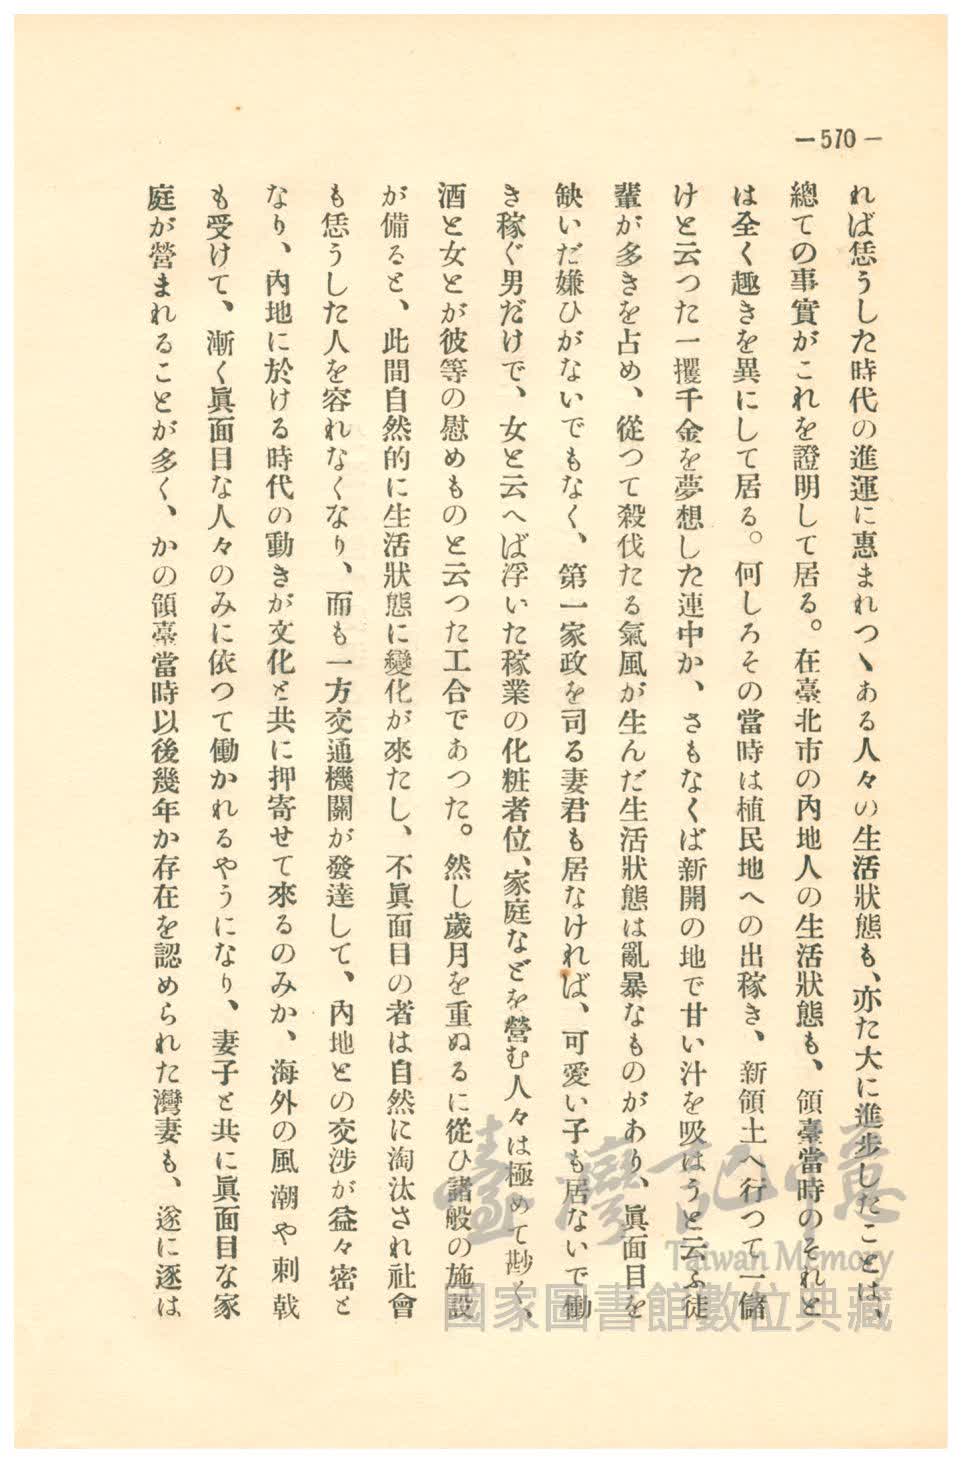 —570—
れば恁うした時代の進運に惠まれつヽある人々の生活狀態も、亦た大に進步したことは、
總ての事實がこれを證明して居る。在臺北市の內地人の生活狀態も、領臺當時のそれと
は全く趣きを異にして居る。何しろその當時は植民地への出稼き、新領土へ行つて一儲
けと云つた一攫千金を夢想した連中か、さもなくば新開の地で甘い汁を吸はうと云ふ徒
輩が多きを占め、從つて殺伐たる氣風が生んだ生活狀態は亂暴なものがあり、眞面目を
缺いだ嫌ひがないでもなく、第一家政を司る妻君も居なければ、可愛い子も居ないで働
き稼ぐ男だけで、女と云へば浮いた稼業の化粧者位、家庭などを營む人々は極めて尠く、
酒と女とが彼等の慰めものと云つた工合であつた。然し歲月を重ぬるに從ひ諸般の施設
が備ると、此間自然的に生活狀態に變化が來たし、不眞面目の者は自然に淘汰され社會
も恁うした人を容れなくなり、而も一方交通機關が發達して、內地との交涉が益々密と
なり、內地に於ける時代の動きが文化と共に押寄せて來るのみか、海外の風潮や刺戟
も受けて、漸く眞面目な人々のみに依つて働かれるやうになり、妻子と共に眞面目な家
庭が營まれることが多く、かの領臺當時以後幾年か存在を認められた灣妻も、遂に逐は
臺灣記憶
Taiwan Memory
國家圖書館數位典藏